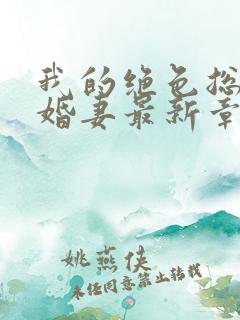 我的绝色总
婚妻最新章
姚燕侠
未经同意禁止转载